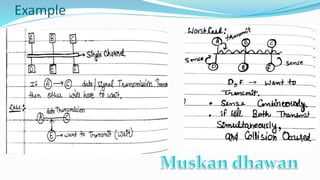 Example
A B C
Single Channel
D E F
If A → C data/signal Transmission
then other will have to wait.
data Transmission
A → C
E → want to Transmit (Wait)
transmit
A B C
Sense
Sense
D E F
D & F → Want to
Transmit.
Sense Continuously.
if Both Transmit
Simultaneously,
and Collision Occured
Muskan dhawan